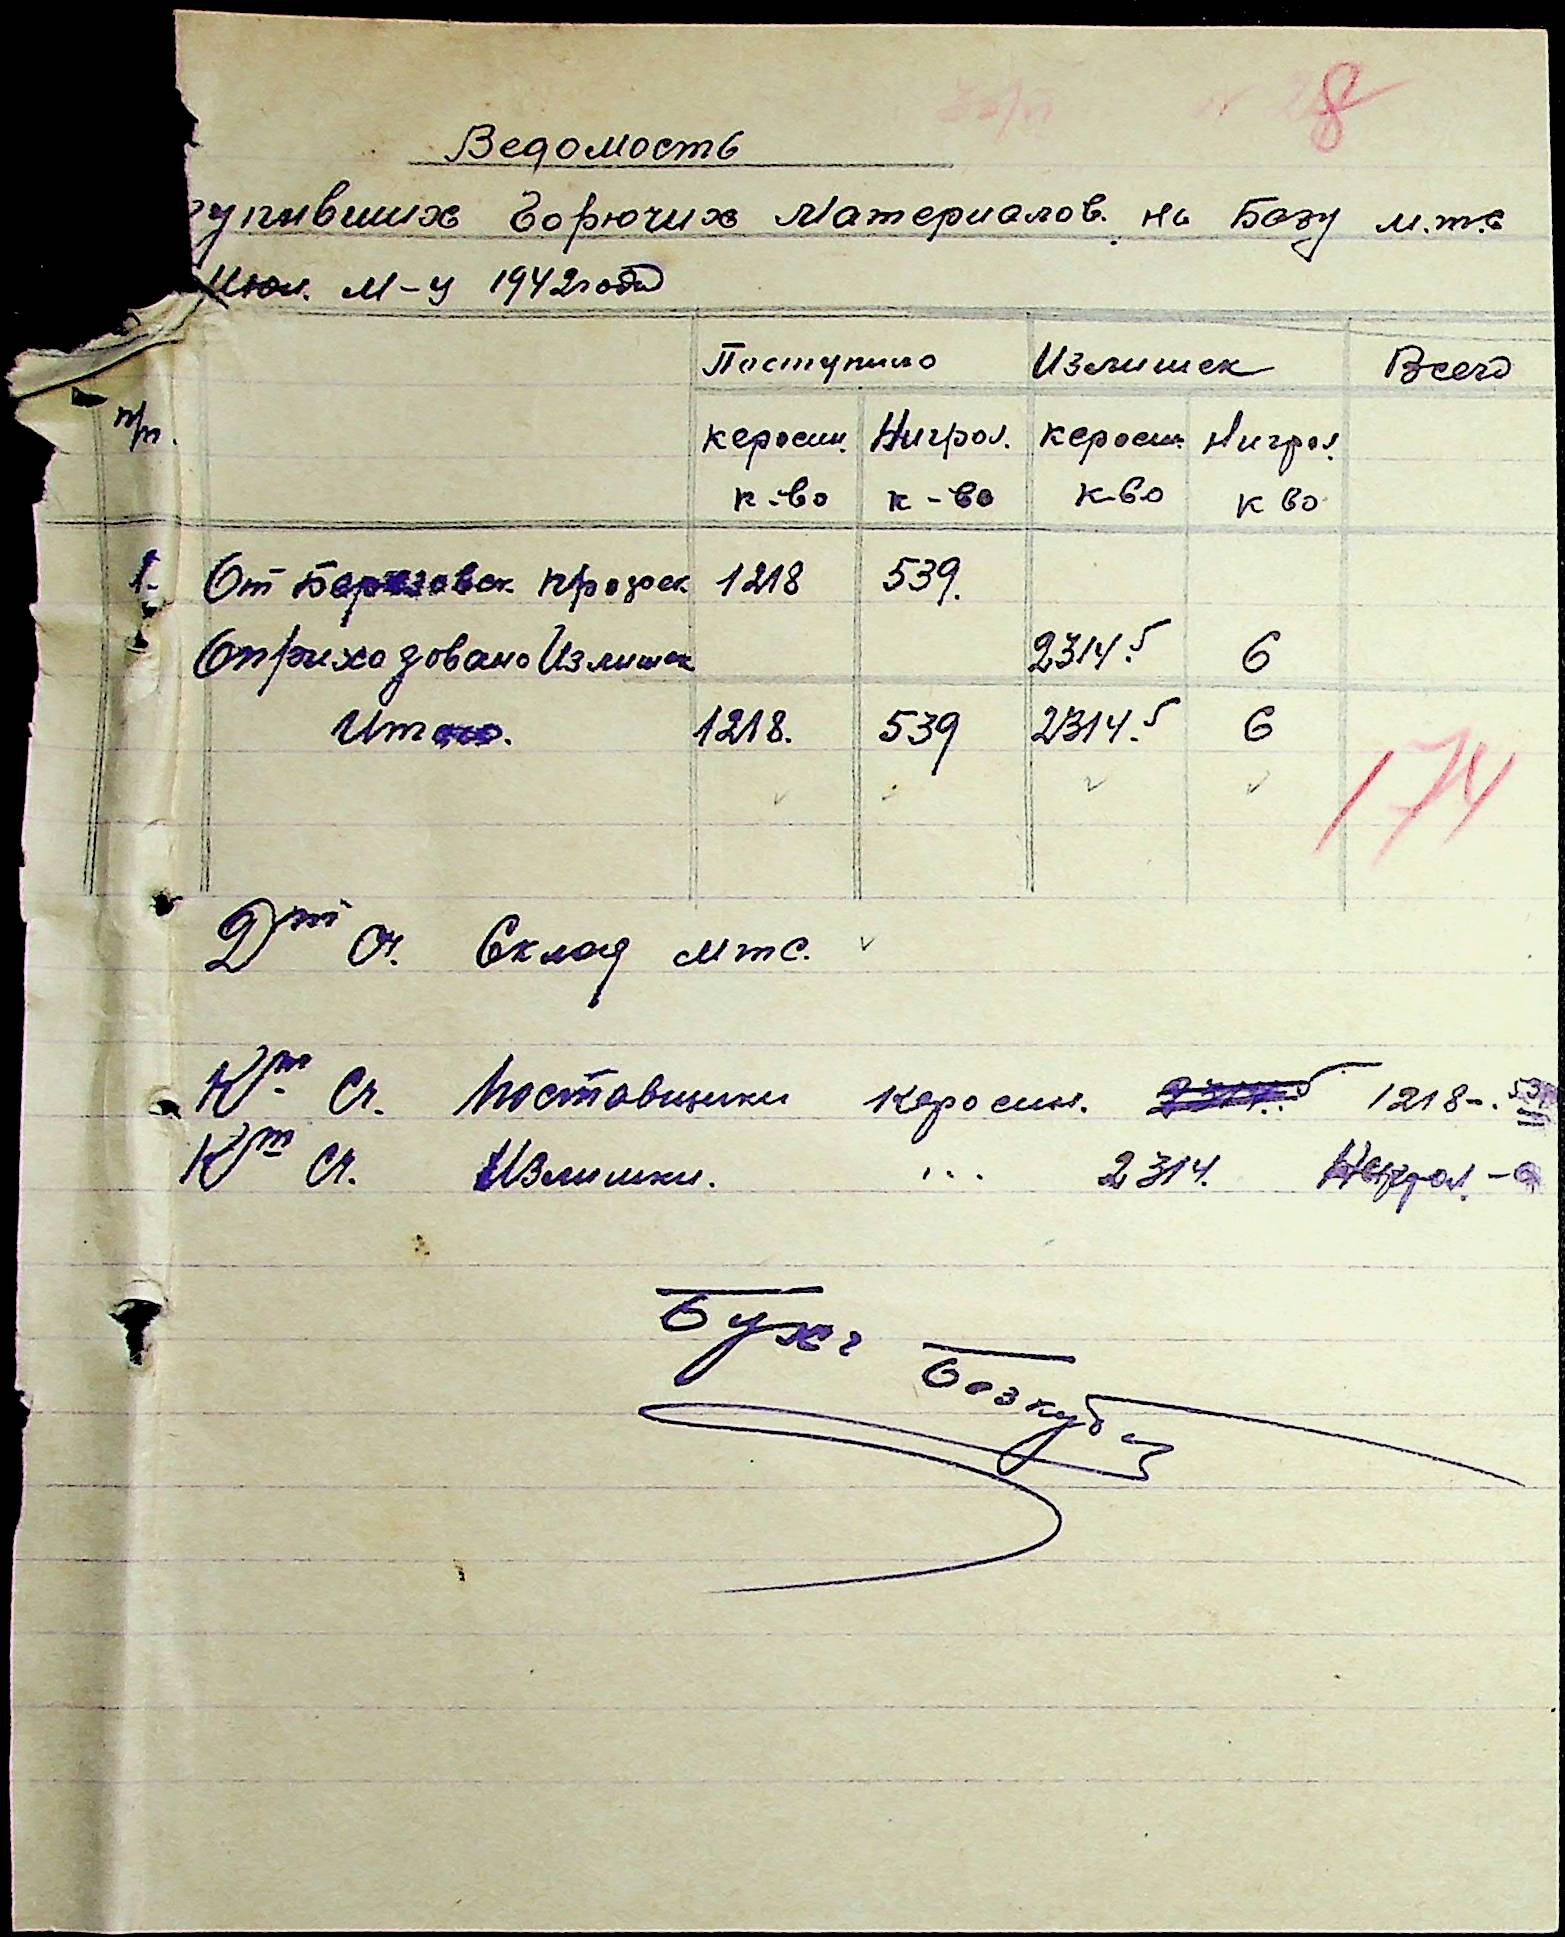 28
Ведомость
упивших Горючих Материалов. на Базу м.т.с
Июл. м-ц 1942 года
Поступило Излишек Всего
п/п. керосин. Нигрол. керосин. Нигрол.
к-во к-во к-во к во
1. От Березовск. 1218 539.
Оприходовано Излишек 2314.5 6
Итого. 1218. 539 2314.5 6
174
Дт Сч. Склад мтс.
Кт Сч. Поставщики Керосин. 1218-. 539
Кт Сч. Излишки. ... 2314. Нигрол. - 6
Бухг